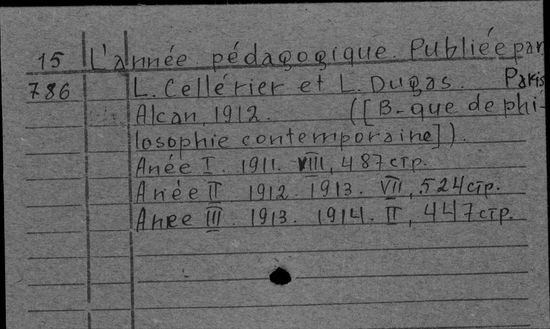 15 L'année pédagogique. Publiée par
786 L. Cellérier et L. Dugas. Paris
Alcan, 1912. ([B-que de phi-
losophie contemporaine]).
Anée I. 1911. VIII, 487 стр.
Anée II 1912. 1913. VII, 524 стр.
Anee III. 1913. 1914. II, 447 стр.